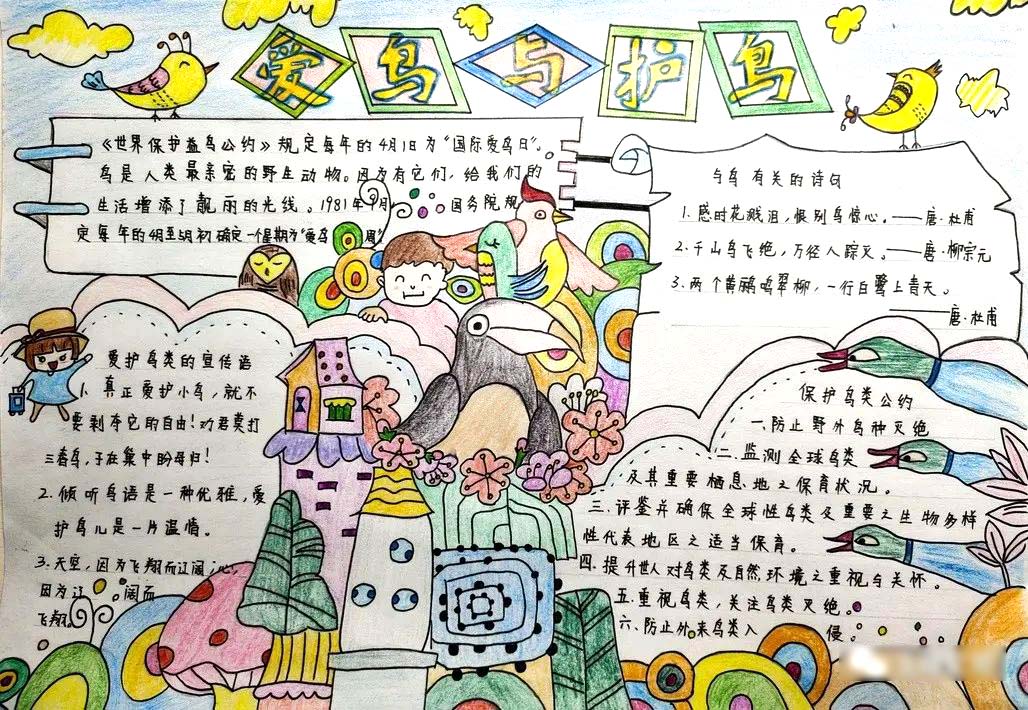 爱鸟与护鸟
《世界保护益鸟公约》规定每年的4月1日为“国际爱鸟日”。
鸟是人类最亲密的野生动物。因为有它们，给我们的
生活增添了靓丽的光线。1981年9月，国务院规
定每年的4月至5月初确定一个星期为“爱鸟周”
与鸟有关的诗句
1.感时花溅泪，恨别鸟惊心。——唐·杜甫
2.千山鸟飞绝，万径人踪灭。——唐·柳宗元
3.两个黄鹂鸣翠柳，一行白鹭上青天。
——唐·杜甫
爱护鸟类的宣传语
1.真正爱护小鸟，就不
要剥夺它的自由！劝君莫打
三春鸟，子在巢中盼母归！
2.倾听鸟语是一种优雅，爱
护鸟儿是一片温情。
3.天空，因为飞翔而辽阔；心，
因为辽阔而
飞翔
保护鸟类公约
一、防止野外鸟种灭绝
二、监测全球鸟类
及其重要栖息地之保育状况。
三、评鉴并确保全球性鸟类及重要之生物多样
性代表地区之适当保育。
四、提升世人对鸟类及自然环境之重视与关怀。
五、重视鸟类，关注鸟类灭绝。
六、防止外来鸟类入侵。